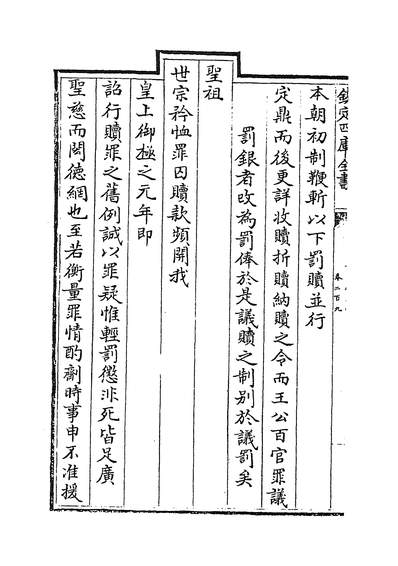 欽定四庫全書
卷二百九
本朝初制鞭斬以下罰贖並行
定鼎而後更詳收贖折贖納贖之令而王公百官罪議
罰銀者改為罰俸於是議贖之制别於議罰矣
聖祖
世宗矜恤罪囚贖款頻開我
皇上御極之元年即
詔行贖罪之舊例誠以罪疑惟輕罰懲非死皆足廣
聖慈而闊德網也至若衡量罪情酌劑時事申不准援